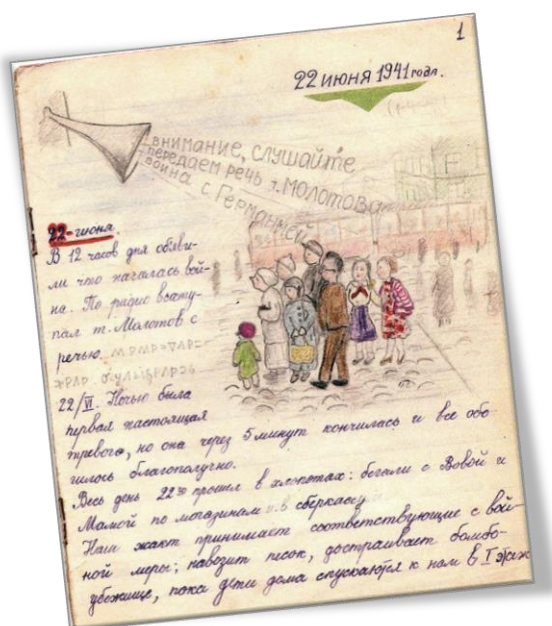 1
22 июня 1941 года.
внимание, слушайте
передаем речь т. Молотова
война с Германией
22-июня.
В 12 часов дня объяви-
ли что началась вой-
на. По радио высту-
пал т. Молотов с
речью
22/VI. Ночью была
первая настоящая
тревога, но она через 5 минут кончилась и все обо
шлось благополучно.
Весь день 22го прошел в хлопотах: бегали с Вовой и
Мамой по магазинам и в сберкассу
Наш жакт принимает соответствующие с вой-
ной меры; навозит песок, достраивает бомбо-
убежище, пока дети дома спускаются к нам в I этаж